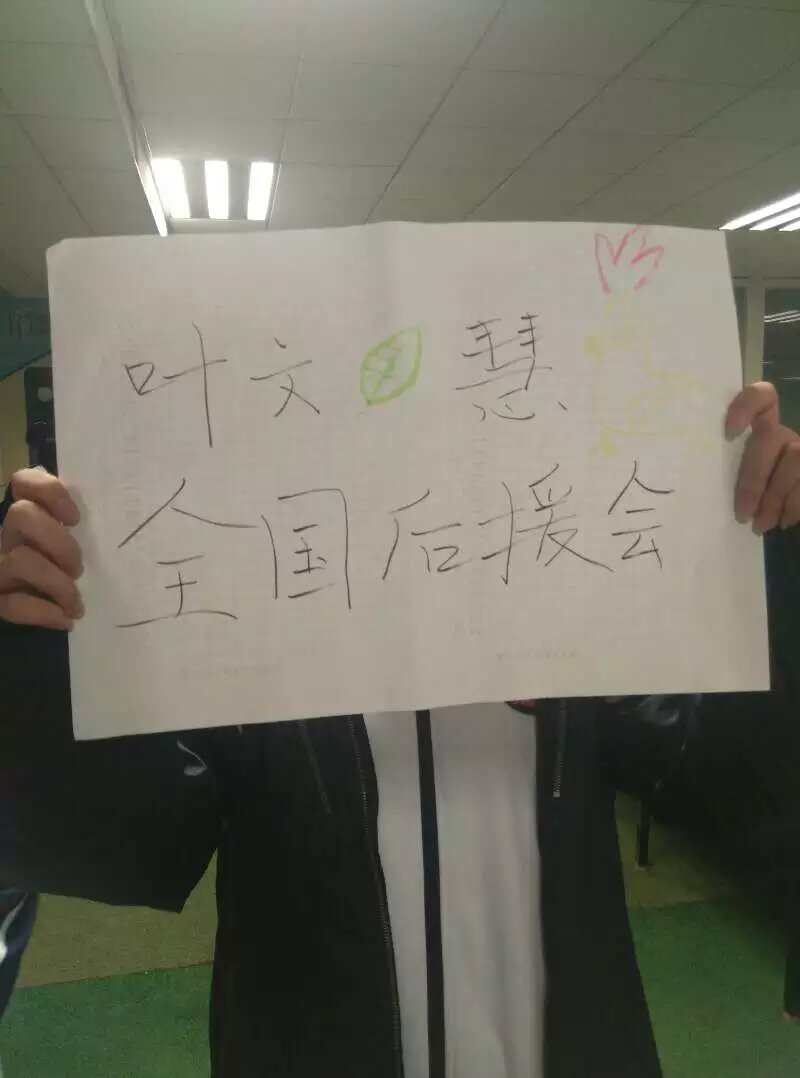 叶文慧
全国后援会